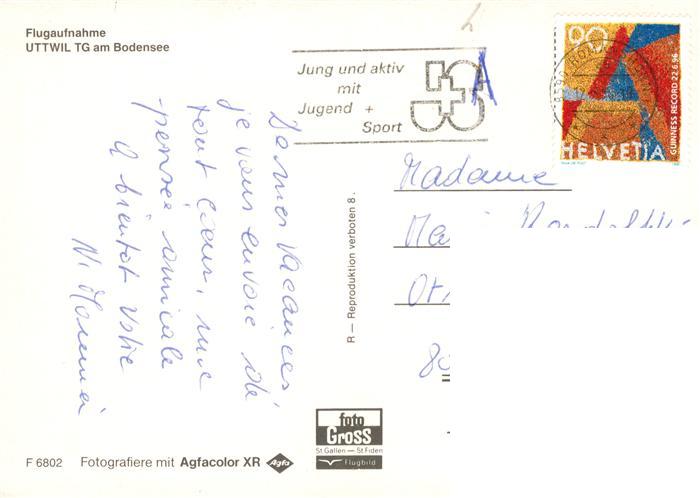 Flugaufnahme
UTTWIL TG am Bodensee
Jung und aktiv
mit
Jugend +
Sport
A
90
GUINNESS RECORD 22.6.96
HELVETIA
De mes Vacances,
je vous envoie de
tout cœur, une
pensée amicale
A bientôt Votre
Madame
R — Reproduktion verboten 8.
foto
GROSS
St Gallen — St Fiden
Flugbild
F 6802 Fotografiere mit Agfacolor XR Agfa